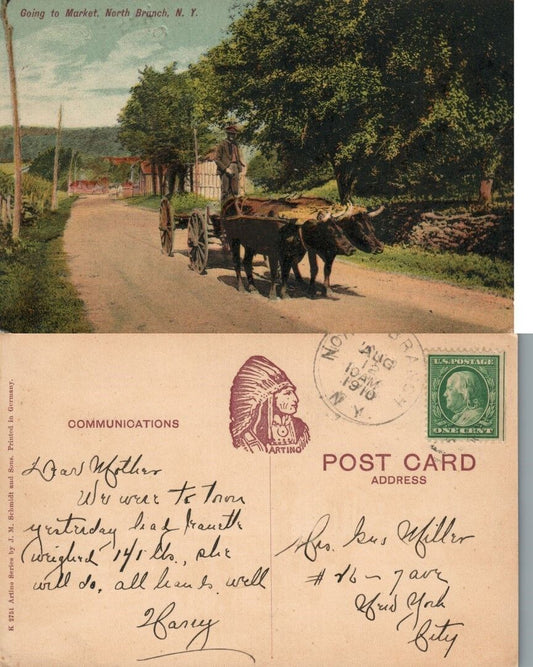 Going to Market, North Branch, N. Y.
K 2751 Artino Series by J. M. Schmidt and Sons. Printed in Germany.
COMMUNICATIONS
ARTINO
NORTH BRANCH
AUG
12
10 AM
1910
N.Y.
U.S. POSTAGE
ONE CENT
POST CARD
ADDRESS
Dear Mother
We were to Town
yesterday had
weighed 141 lbs., she
will do, all hands well
Harry
Mrs. Gus Miller
# 26 – 7 ave
New York
City